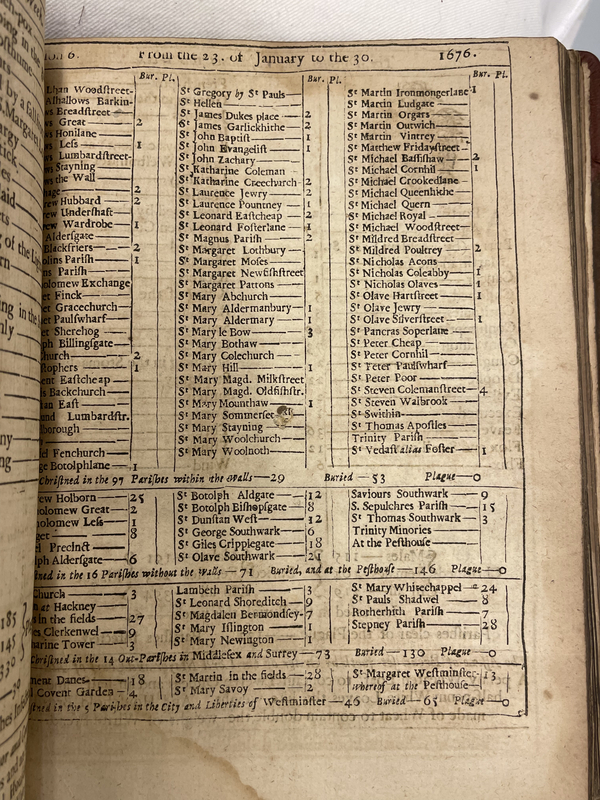 From the 23. of January to the 30. 1676.
Bur. Pl. Bur. Pl. Bur. Pl.
Woodſtreet-
Alhallows Barkin-
Breadſtreet—
Great—2
Honilane—
Leſs—1
Lumbardſtreet-
Stayning—
the Wall—
2
Hubbard—2
Underſhaft—
Wardrobe—1
Alderſgate—
Blackfriers—2
Pariſh—1
Pariſh—
Exchange
Finck—
Gracechurch—
Paulſwharf—
Sherehog—
Billingſgate—
2
1
Eaſtcheap—
Backchurch—
Eaſt—
Lumbardſtr.
Fenchurch—
Botolphlane—1
St Gregory by St Pauls—
St Hellen—
St James Dukes place—2
St James Garlickhithe—2
St John Baptiſt—1
St John Evangeliſt—1
St John Zachary—
St Katharine Coleman
St Katharine Creechurch-2
St Laurence Jewry—2
St Laurence Pountney—1
St Leonard Eaſtcheap—2
St Leonard Foſterlane—1
St Magnus Pariſh—2
St Margaret Lothbury—
St Margaret Moſes—
St Margaret Newfiſhſtreet
St Margaret Pattons—
St Mary Abchurch—
St Mary Aldermanbury—1
St Mary Aldermary—1
St Mary le Bow—3
St Mary Bothaw—
St Mary Colechurch—
St Mary Hill—1
St Mary Magd. Milkſtreet
St Mary Magd. Oldfiſhſtr.
St Mary Mounthaw—1
St Mary Sommerſet
St Mary Stayning—
St Mary Woolchurch—
St Mary Woolnoth—
St Martin Ironmongerlane 1
St Martin Ludgate—
St Martin Orgars—
St Martin Outwich—
St Martin Vintrey—
St Matthew Fridayſtreet—
St Michael Baſſiſhaw—2
St Michael Cornhil—1
St Michael Crookedlane—
St Michael Queenhithe—
St Michael Quern—
St Michael Royal—
St Michael Woodſtreet—
St Mildred Breadſtreet—
St Mildred Poultrey—2
St Nicholas Acons—
St Nicholas Coleabby—1
St Nicholas Olaves—1
St Olave Hartſtreet—1
St Olave Jewry—
St Olave Silverſtreet—1
St Pancras Soperlane—
St Peter Cheap—
St Peter Cornhil—
St Peter Paulſwharf
St Peter Poor—
St Steven Colemanſtreet—4
St Steven Walbrook—
St Swithin—
St Thomas Apoſtles—
Trinity Pariſh—
St Vedaſt alias Foſter—1
Chriſtned in the 97 Pariſhes within the Walls—29 Buried—53 Plague—0
Holborn—25
Great—2
Leſs—1
8
Precinct—
Alderſgate—6
St Botolph Aldgate—12
St Botolph Biſhopſgate—8
St Dunſtan Weſt—12
St George Southwark—6
St Giles Cripplegate—18
St Olave Southwark—21
Saviours Southwark—9
S. Sepulchres Pariſh—15
St Thomas Southwark—3
Trinity Minories
At the Peſthouſe—
in the 16 Pariſhes without the Walls—71 Buried, and at the Peſthouſe—146 Plague—0
3
at Hackney
in the fields—27
Clerkenwel—9
Tower—3
Lambeth Pariſh—3
St Leonard Shoreditch—9
St Magdalen Bermondſey-7
St Mary Iſlington—1
St Mary Newington—1
St Mary Whitechappel—24
St Pauls Shadwel—8
Rotherhith Pariſh—7
Stepney Pariſh—28
Chriſtned in the 14 Out-Pariſhes in Middleſex and Surrey—73 Buried—130 Plague—0
Danes—18
Covent Garden—4
St Martin in the fields—28
St Mary Savoy—2
St Margaret Weſtminſter-13
whereof at the Peſthouſe—
in the 5 Pariſhes in the City and Liberties of Weſtminſter—46 Buried—65 Plague—0